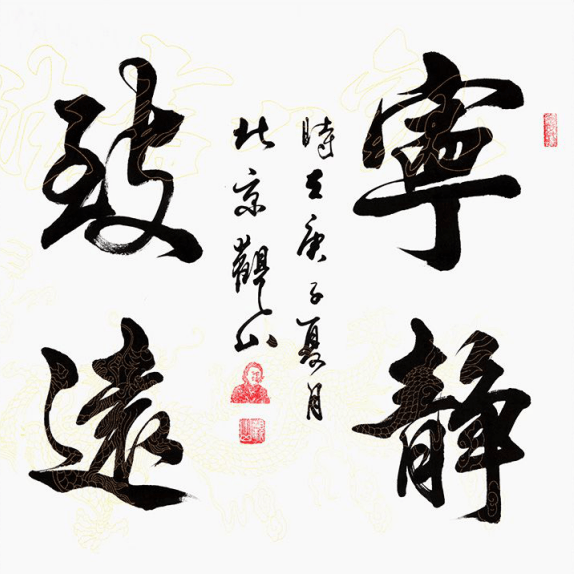 寧靜
時在庚子夏月
北京觀山
致遠